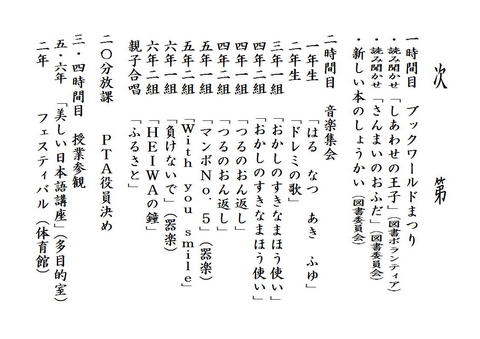 次第
一時間目　ブックワールドまつり
・読み聞かせ「しあわせの王子」（図書ボランティア）
・読み聞かせ「さんまいのおふだ」（図書委員会）
・新しい本のしょうかい（図書委員会）
二時間目　音楽集会
一年生　「はる　なつ　あき　ふゆ」
二年生　「ドレミの歌」
三年一組　「おかしのすきなまほう使い」
四年二組　「おかしのすきなまほう使い」
四年一組　「つるのおん返し」
四年二組　「つるのおん返し」
五年一組　「マンボＮｏ．５」（器楽）
五年二組　「Ｗｉｔｈ　ｙｏｕ　ｓｍｉｌｅ」
六年一組　「負けないで」（器楽）
六年二組　「ＨＥＩＷＡの鐘」
親子合唱　「ふるさと」
二〇分放課　ＰＴＡ役員決め
三・四時間目　授業参観
五・六年　「美しい日本語講座」（多目的室）
二年　フェスティバル（体育館）